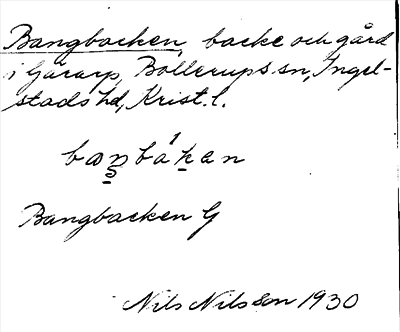 Bangbacken, backe och gård
i Gärarp, Bollerups sn, Ingel-
stads hd, Krist. l.
Bangbacken G
Nils Nilsson 1930